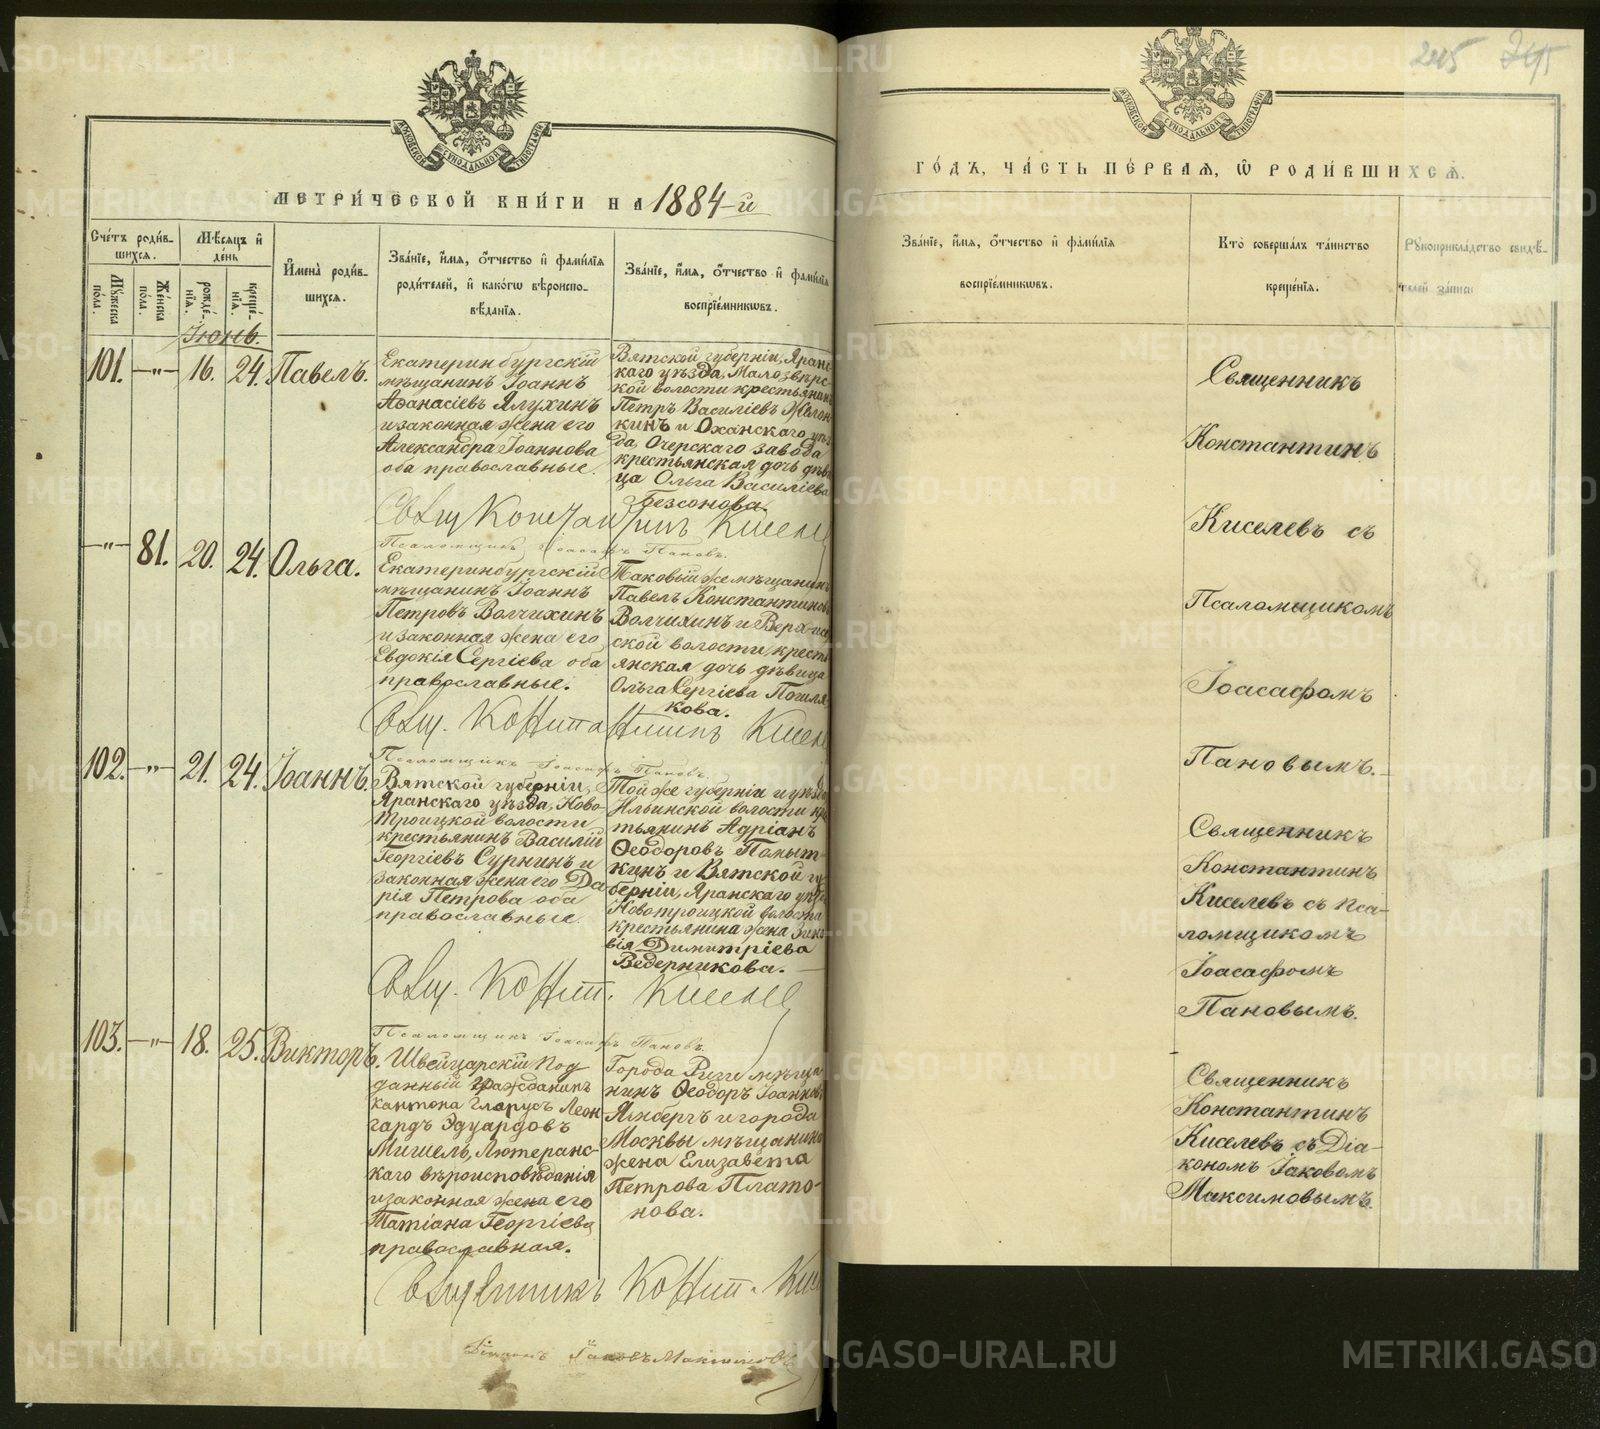 МОСКОВСКОЙ СѴНОДАЛЬНОЙ ТИПОГРАФІИ
МЕТРИ́ЧЕСКОЙ КНИ́ГИ НА 1884-й
Сче́тъ роди́в-
шихся.
Мѣ́сяцъ и҆
де́нь
Мꙋ́жеска
по́ла.
Же́нска
по́ла.
рожде́-
нїя.
креще́-
нїя.
И҆мена̀ роди́в-
шихся.
Зва́нїе, и҆́мя, ѻ҆́тчество и҆ фами́лїя
роди́телей, и҆ како́гѡ вѣроиспо-
вѣ́данїя.
Зва́нїе, и҆́мя, ѻ҆́тчество и҆ фами́лїя
воспрїе́мниковъ.
Іюнь.
101. —"— 16. 24. Павелъ.
Екатеринбургскій
мѣщанинъ Іоаннъ
Аѳанасіевъ Ялухинъ
и законная жена его
Александра Іоаннова
оба православные.
Вятской губерніи, Яранс-
каго уѣзда, Малозвѣрс-
кой волости крестьянинъ
Петръ Василіевъ
и Оханскаго уѣз-
да, Очерскаго завода
крестьянская дочь дѣви-
ца Ольга Василіева
Безсонова.
Свящ Константинъ Киселев
Псаломщикъ Іоасафъ Пановъ.
—"— 81. 20. 24. Ольга.
Екатеринбургскій
мѣщанинъ Іоаннъ
Петровъ Волчихинъ
и законная жена его
Евдокія Сергіева оба
православные.
Таковый же мѣщанинъ
Павелъ Константиновъ
Волчихинъ и
ской волости, кресть-
янская дочь дѣвица
Ольга Сергіева
кова.
Свящ. Константинъ Киселев
Псаломщикъ Іоасафъ Пановъ.
102. —"— 21. 24. Іоаннъ.
Вятской губерніи,
Яранскаго уѣзда, Ново-
троицкой волости
крестьянинъ Василій
Георгіевъ Сурнинъ и
законная жена его Да-
рія Петрова оба
православные.
Той же губерніи и уѣзда
Ильинской волости
Адріанъ
Ѳеодоровъ
и Вятской гу-
берніи, Яранскаго уѣзда
Новотроицкой волости
крестьянина жена Зино-
вія Димитріева
Ведерникова.
Свящ. Конст. Киселев
Псаломщикъ Іоасафъ Пановъ.
103. —"— 18. 25. Викторъ.
Швейцарскій под
данный гражданинъ
кантона Гларусъ Леон-
гардъ Эдуардовъ
Мишель, Лютеранс-
каго вѣроисповѣданія
и законная жена его
Татіана Георгіева
православная.
Города Риги мѣща-
нинъ Ѳеодоръ Іоанновъ
и города
Москвы мѣщанина
жена Елизавета
Петрова Плато-
нова.
Священникъ Конст. Кис
Діаконъ Іаковъ Максимовъ
МОСКОВСКОЙ СѴНОДАЛЬНОЙ ТИПОГРАФІИ
245
ГО́ДЪ, ЧА́СТЬ ПЕ́РВАЯ, Ѡ҆ РОДИ́ВШИХСЯ.
Зва́нїе, и҆́мя, ѻ҆́тчество и҆ фами́лїя
воспрїе́мниковъ.
Кто̀ соверша́лъ та́инство
креще́нїя.
Рꙋкоприкла́дство свидѣ́-
телей записи
Священникъ
Константинъ
Киселевъ съ
Псаломщикомъ
Іоасафомъ
Пановымъ.
Священникъ
Константинъ
Киселевъ съ Пса-
ломщикомъ
Іоасафомъ
Пановымъ.
Священникъ
Константинъ
Киселевъ съ Діа-
кономъ Іаковомъ
Максимовымъ.
METRIKI.GASO-URAL.RU